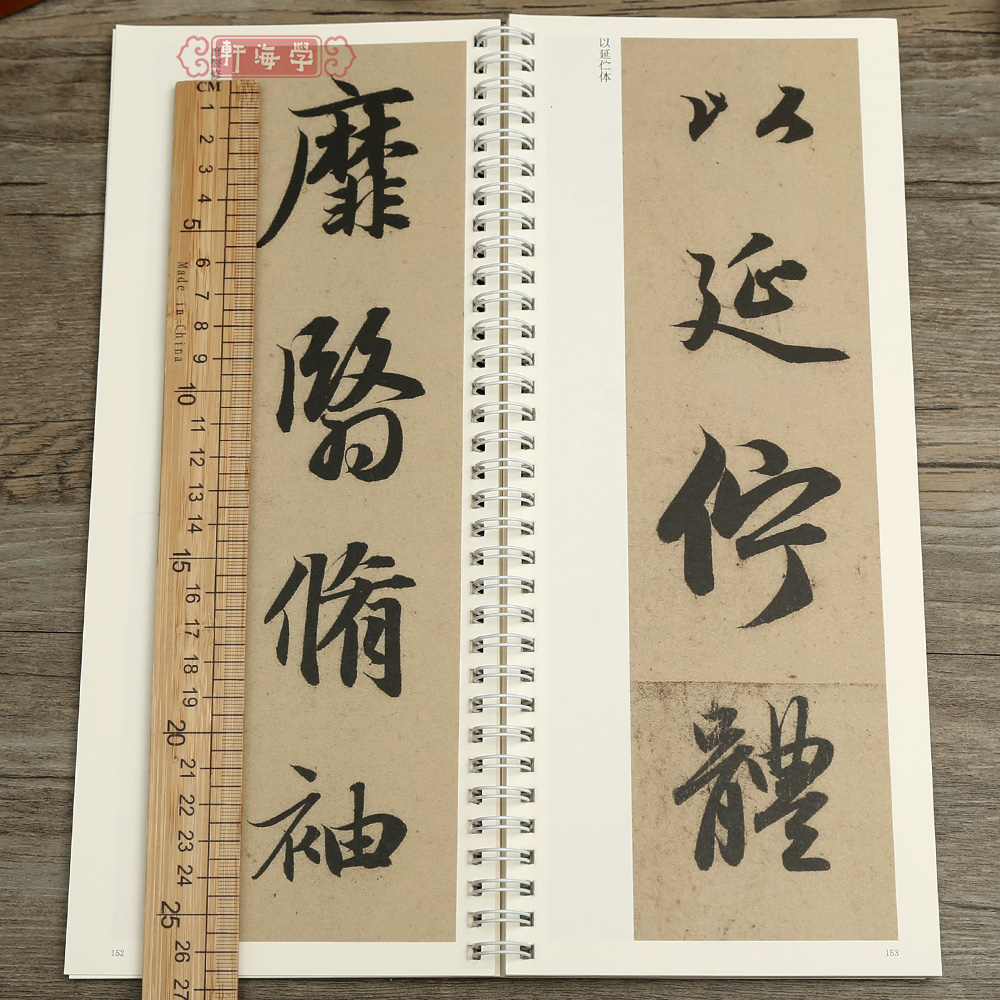 學海軒
CM
1
2
3
4
5
6
7
8
9
10
11
12
13
14
15
16
17
18
19
20
21
22
23
24
25
26
27
Made in China
靡翳脩袖
152
以延伫体
以延佇體
153